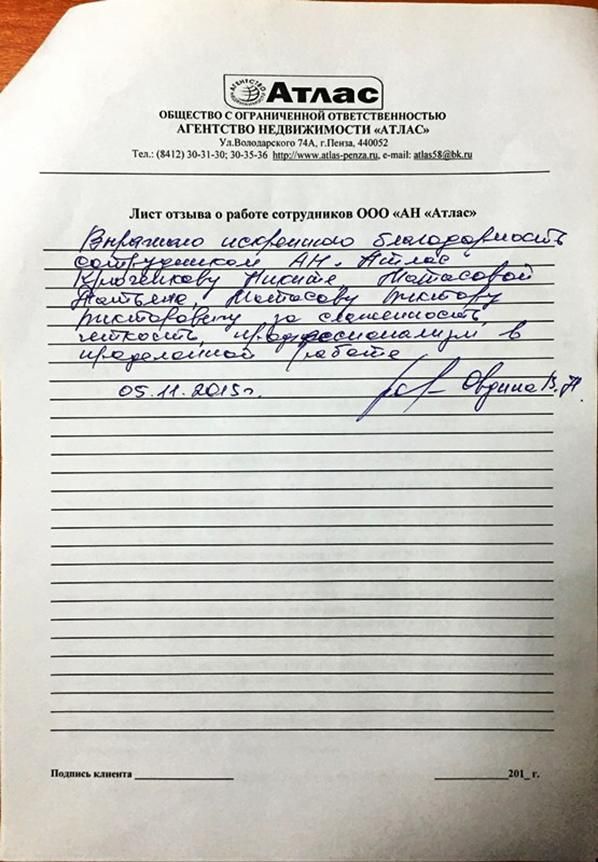 АГЕНТСТВО НЕДВИЖИМОСТИ
Атлас
ОБЩЕСТВО С ОГРАНИЧЕННОЙ ОТВЕТСТВЕННОСТЬЮ
АГЕНТСТВО НЕДВИЖИМОСТИ «АТЛАС»
Ул.Володарского 74А, г.Пенза, 440052
Тел.: (8412) 30-31-30; 30-35-36 http://www.atlas-penza.ru, e-mail: atlas58@bk.ru
Лист отзыва о работе сотрудников ООО «АН «Атлас»
Выражаю искреннюю благодарность
сотрудникам АН. Атлас
Никите Матасовой
Татьяне, Матасову Виктору
Викторовичу за слаженность,
четкость, профессионализм в
проделанной работе
05.11.2015г. Овдина В.Н.
Подпись клиента ____________ ____________201_ г.